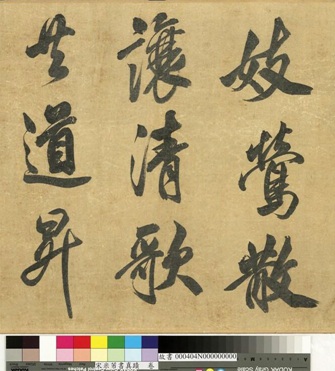 妓鶯散
讓清歌
共道昇
故書 000404N000000000
KODAK Gray Scale